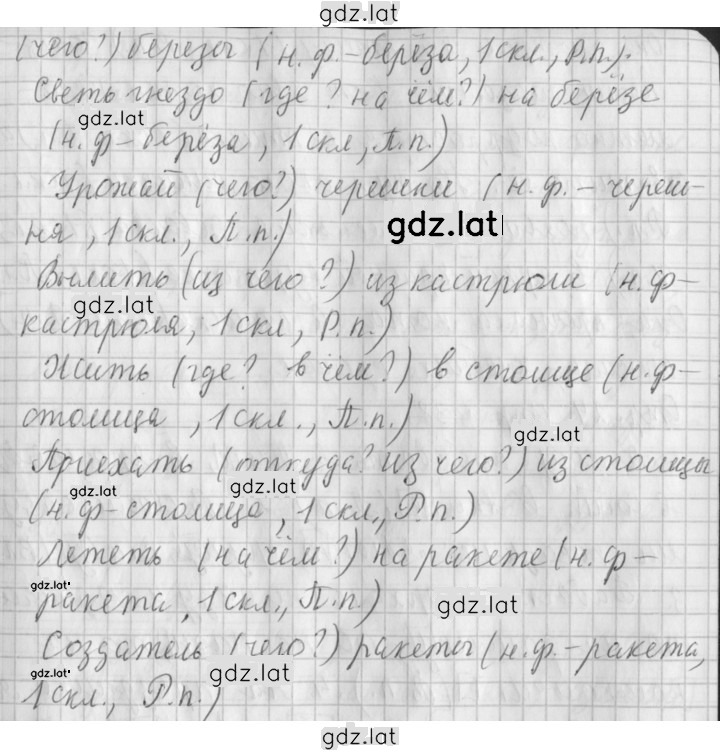 gdz.lat
(чего?) березы (н. ф.-берёза, 1 скл., Р.п.).
Светь гнездо (где? на чём?) на берёзе
gdz.lat
(н. ф-берёза, 1 скл, П.п.)
Урожай (чего?) черешни (н. ф. - череш-
gdz.lat
ня, 1 скл., П.п.)
Вылить (из чего?) из кастрюли (н. ф-
gdz.lat
кастрюля, 1 скл, Р.п.)
Жить (где? в чём?) в столице (н. ф-
столица, 1 скл., П.п.)
gdz.lat
Приехать (откуда? из чего?) из столицы
gdz.lat gdz.lat
(н. ф-столица, 1 скл., Р.п.)
Лететь (на чём?) на ракете (н. ф-
gdz.lat
ракета, 1 скл., П.п.)
gdz.lat
Создатель (чего?) ракеты (н. ф.-ракета,
gdz.lat gdz.lat
1 скл., Р.п.)
gdz.lat